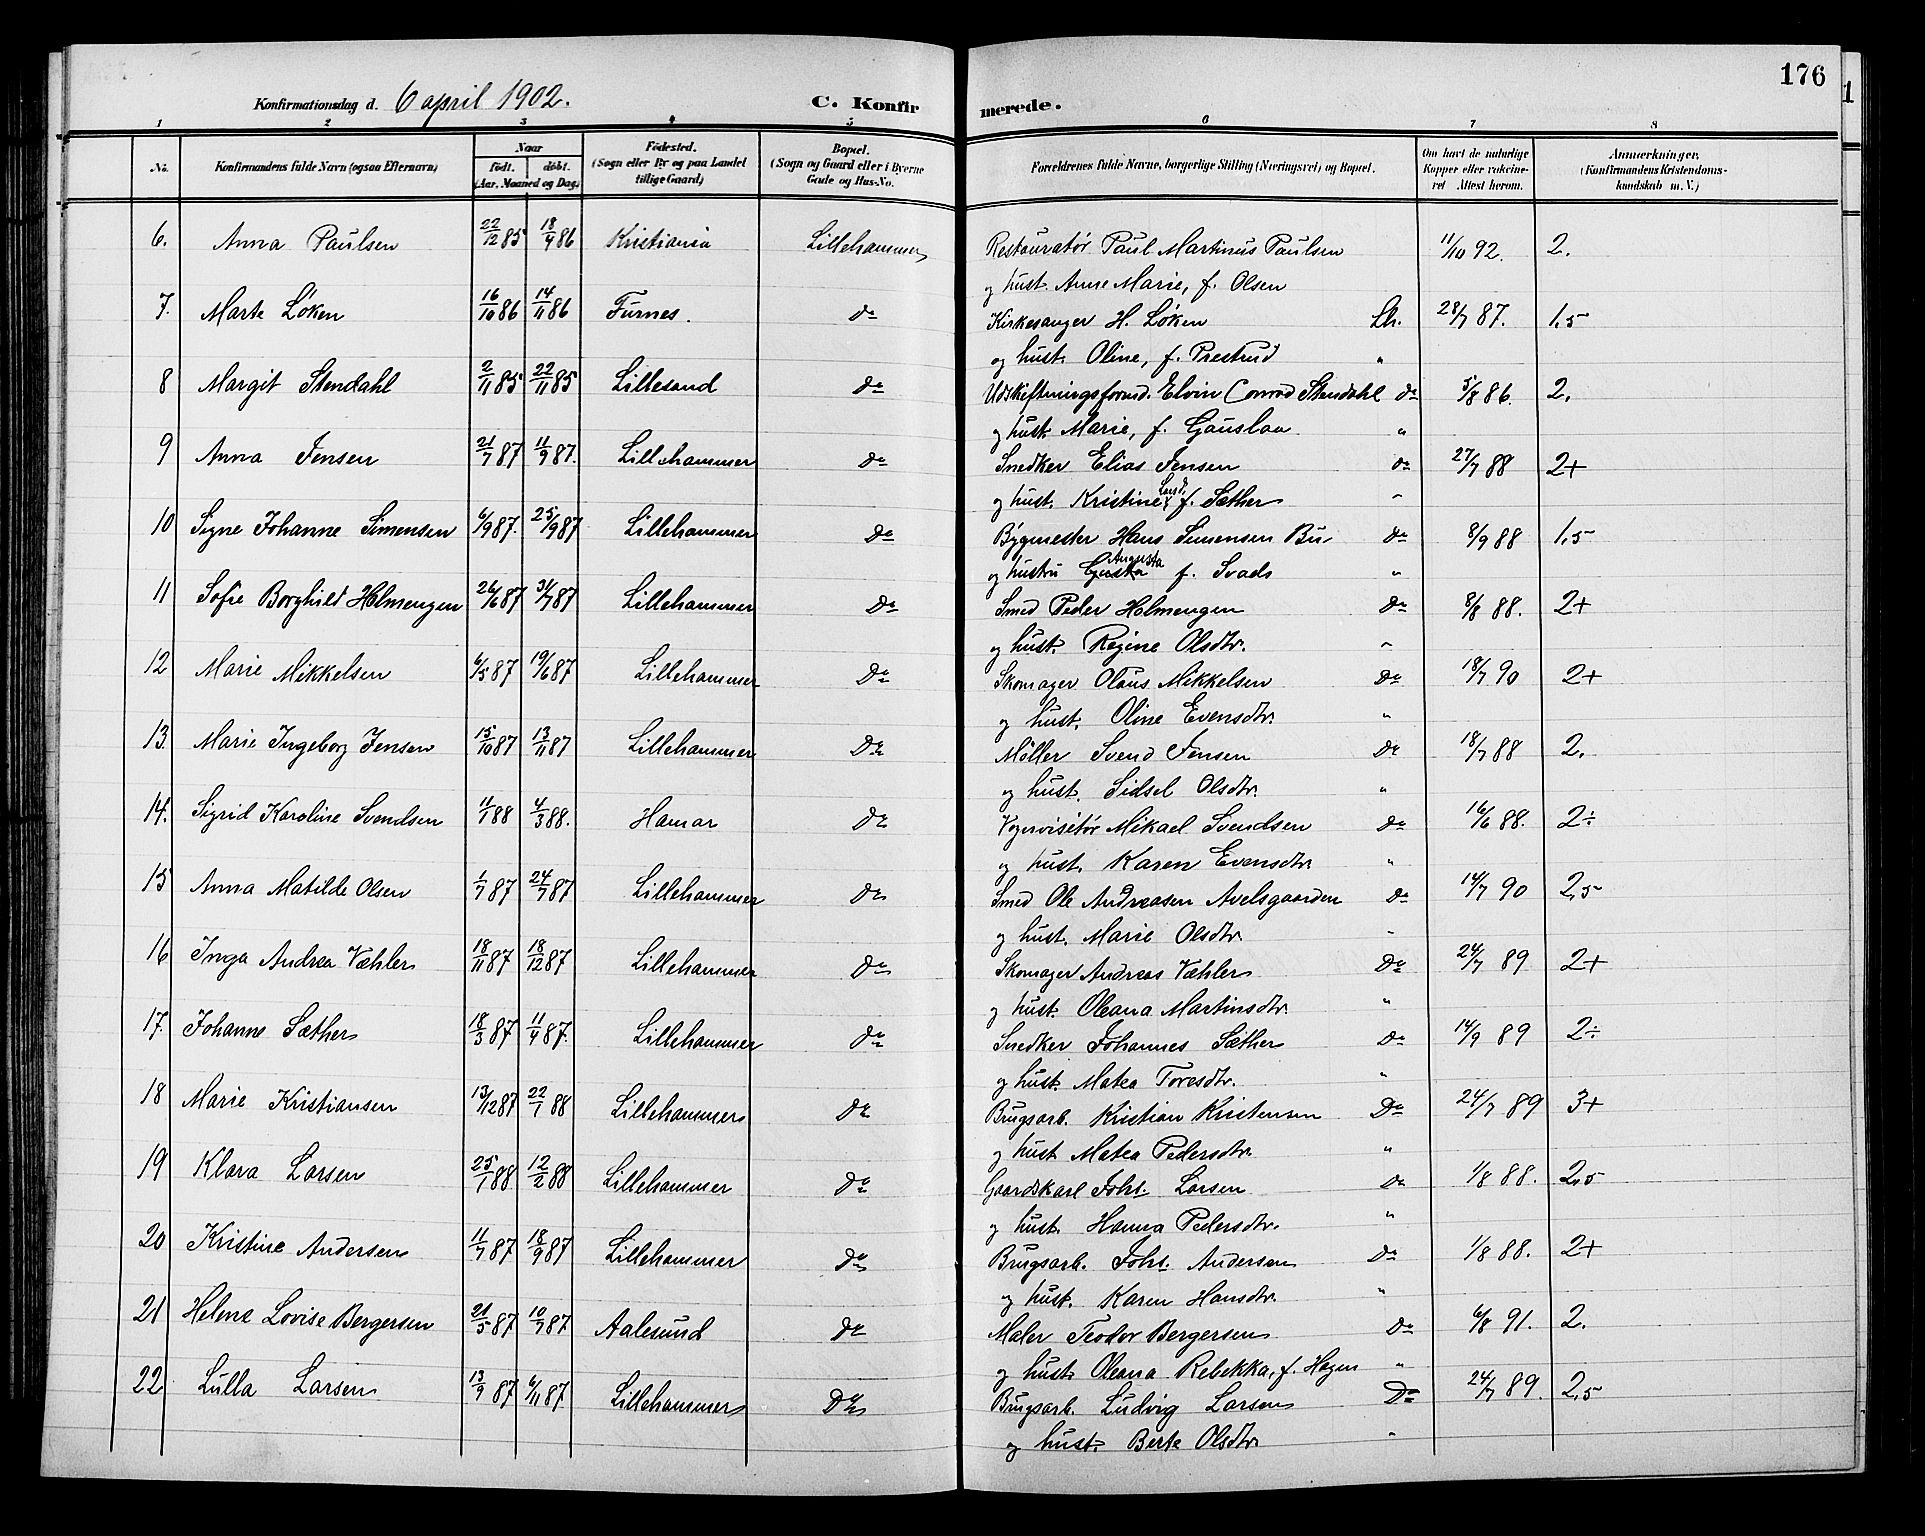 176
Konfirmationsdag d. 6 april 1902. C. Konfirmerede.
1 2 3 4 5 6 7 8
No. Konfirmandens fulde Navn (ogsaa Efternavn) Naar født. døbt. (Aar, Maaned og Dag) Fødested. (Sogn eller By og paa Landet tillige Gaard) Bopæl. (Sogn og Gaard eller i Byerne Gade og Hus-No. Forældrenes fulde Navne, borgerlige Stilling (Næringsvei) og Bopæl. Om havt de naturlige Kopper eller vakcineret Attest herom. Anmærkninger, (Konfirmandens Kristendomskundskab m. V.)
6. Anna Paulsen 22/12 85 18/4 86 Kristiania Lillehammer Restauratør Paul Martinus Paulsen 11/10 92. 2.
og hust. Anne Marie, f. Olsen
7. Marte Løken 16/10 86 14/11 86 Furnes. do Kirkesanger H. Løken Lh. 28/7 87. 1,5
og hust. Oline, f. Prestrud "
8 Margit Stendahl 2/11 85 22/11 85 Lillesand do Udskiftningsformd. Elvin Conrad Stendahl do 5/8 86. 2.
og hust. Marie, f. Gauslaa "
9 Anna Jensen 21/7 87 11/9 87. Lillehammer do Snedker Elias Jensen do 27/7 88 2+
og hust. Kristine Larsd. f. Sæther "
10 Signe Johanne Simensen 6/9 87. 25/9 87 Lillehammer do Bygmester Hans Simensen Bu do 8/9 88 1,5
og hustru Gusta Augusta f. Svads "
11 Sofie Borghild Holmengen 26/6 87 31/7 87 Lillehammer do Smed Peder Holmengen do 8/8 88. 2+
og hust. Regine Olsdtr. "
12 Marie Mikkelsen 6/5 87 19/6 87 Lillehammer do Skomager Olaus Mikkelsen do 18/7 90 2+
og hust. Oline Evensdtr. "
13. Marie Ingeborg Jensen 15/10 87 13/11 87 Lillehammer do Møller Svend Jensen do 18/7 88 2.
og hust. Sidsel Olsdtr. "
14. Sigrid Karoline Svendsen 11/1 88 4/3 88. Hamar do Vognvisitør Mikael Svendsen do 16/6 88. 2÷
og hust. Karen Evensdtr. "
15 Anna Matilde Olsen 1/7 87 24/7 87 Lillehammer do Smed Ole Andreasen Avelsgaarden do 14/7 90 2,5
og hust. Marie Olsdtr. "
16 Inga Andrea Væhler 18/11 87 18/12 87 Lillehammer do Skomager Andreas Væhler do 24/7 89 2+
og hust. Oleana Martinsdtr. "
17. Johanne Sæther 18/3 87 11/4 87. Lillehammer do Snedker Johannes Sæther do 14/9 89 2÷
og hust. Matea Toresdtr. "
18 Marie Kristiansen 13/12 87 22/1 88 Lillehammer do Brugsarb. Kristian Kristensen do 24/7 89 3+
og hust Matea Pedersdtr. "
19 Klara Larsen 25/1 88 12/2 88 Lillehammer do Gaardskarl Johs. Larsen do 1/8 88. 2,5
og hust. Hanna Pedersdtr. "
20 Kristine Andersen 11/7 87 18/9 87 Lillehammer do Brugsarb. Johs. Andersen do 1/8 88. 2+
og hust. Karen Hansdtr. "
21 Helene Lovise Bergersen 21/5 87 10/7 87 Aalesund do Maler Teodor Bergersen do 6/8 91. 2.
og hust. Oleana Rebekka, f. Hagen "
22 Lulla Larsen 13/9 87 6/11 87 Lillehammer do Brugsarb. Ludvig Larsen do 24/7 89. 2,5
og hust. Berte Olsdtr. "